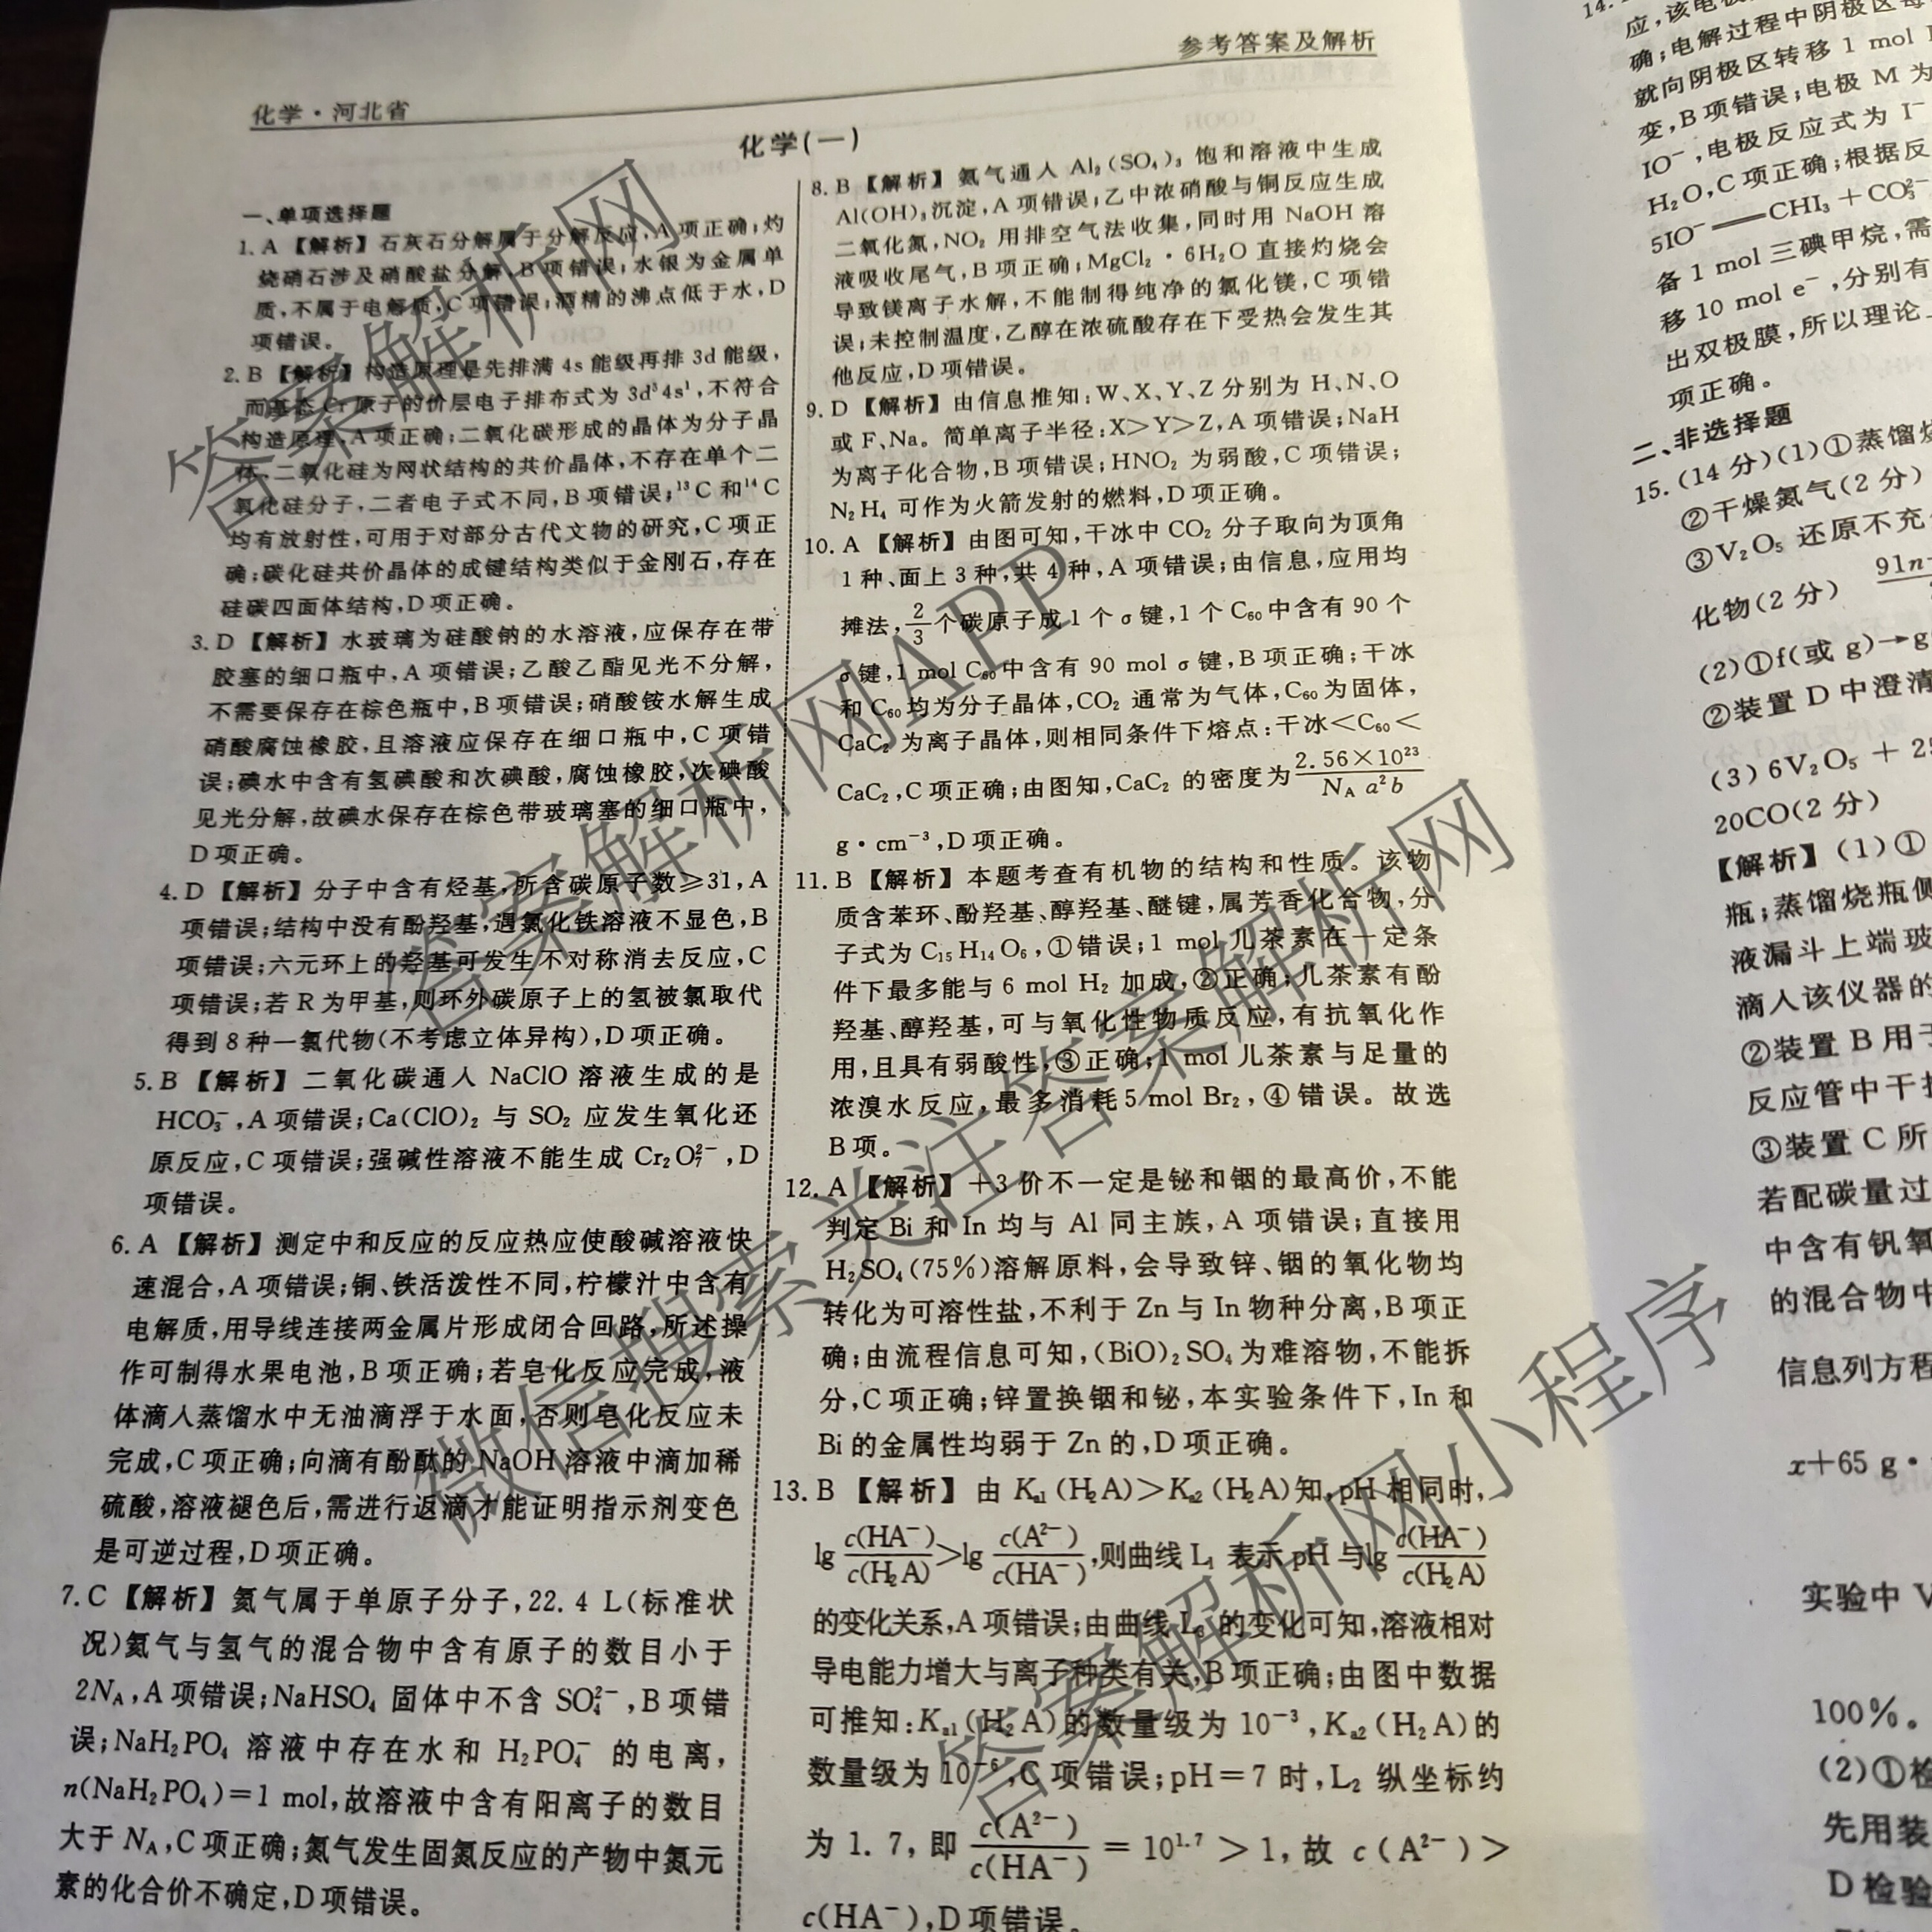 化学·河北省
参考答案及解析
化学(一)
一、单项选择题
1. A 【解析】石灰石分解属于分解反应,A项正确;灼
烧硝石涉及硝酸盐分解,B项错误;水银为金属单
质,不属于电解质,C项错误;酒精的沸点低于水,D
项错误。
2. B 【解析】构造原理是先排满 4s 能级再排 3d 能级,
而基态 Cr 原子的价层电子排布式为 3d⁵4s¹,不符合
构造原理,A项正确;二氧化碳形成的晶体为分子晶
体,二氧化硅为网状结构的共价晶体,不存在单个二
氧化硅分子,二者电子式不同,B项错误;¹³C 和¹⁴C
均有放射性,可用于对部分古代文物的研究,C项正
确;碳化硅共价晶体的成键结构类似于金刚石,存在
硅碳四面体结构,D项正确。
3. D 【解析】水玻璃为硅酸钠的水溶液,应保存在带
胶塞的细口瓶中,A项错误;乙酸乙酯见光不分解,
不需要保存在棕色瓶中,B项错误;硝酸铵水解生成
硝酸腐蚀橡胶,且溶液应保存在细口瓶中,C项错
误;碘水中含有氢碘酸和次碘酸,腐蚀橡胶,次碘酸
见光分解,故碘水保存在棕色带玻璃塞的细口瓶中,
D项正确。
4. D 【解析】分子中含有烃基,所含碳原子数≥31,A
项错误;结构中没有酚羟基,遇氯化铁溶液不显色,B
项错误;六元环上的羟基可发生不对称消去反应,C
项错误;若 R 为甲基,则环外碳原子上的氢被氯取代
得到 8 种一氯代物(不考虑立体异构),D项正确。
5. B 【解析】二氧化碳通入 NaClO 溶液生成的是
HCO₃⁻,A项错误;Ca(ClO)₂ 与 SO₂ 应发生氧化还
原反应,C项错误;强碱性溶液不能生成 Cr₂O₇²⁻,D
项错误。
6. A 【解析】测定中和反应的反应热应使酸碱溶液快
速混合,A项错误;铜、铁活泼性不同,柠檬汁中含有
电解质,用导线连接两金属片形成闭合回路,所述操
作可制得水果电池,B项正确;若皂化反应完成,液
体滴入蒸馏水中无油滴浮于水面,否则皂化反应未
完成,C项正确;向滴有酚酞的 NaOH 溶液中滴加稀
硫酸,溶液褪色后,需进行返滴才能证明指示剂变色
是可逆过程,D项正确。
7. C 【解析】氦气属于单原子分子,22.4 L(标准状
况)氦气与氢气的混合物中含有原子的数目小于
2N_A,A项错误;NaHSO₄ 固体中不含 SO₄²⁻,B项错
误;NaH₂PO₄ 溶液中存在水和 H₂PO₄⁻ 的电离,
n(NaH₂PO₄)=1 mol,故溶液中含有阳离子的数目
大于 N_A,C项正确;氮气发生固氮反应的产物中氮元
素的化合价不确定,D项错误。
8. B 【解析】氨气通入 Al₂(SO₄)₃ 饱和溶液中生成
Al(OH)₃沉淀,A项错误;乙中浓硝酸与铜反应生成
二氧化氮,NO₂ 用排空气法收集,同时用 NaOH 溶
液吸收尾气,B项正确;MgCl₂·6H₂O 直接灼烧会
导致镁离子水解,不能制得纯净的氯化镁,C项错
误;未控制温度,乙醇在浓硫酸存在下受热会发生其
他反应,D项错误。
9. D 【解析】由信息推知:W、X、Y、Z 分别为 H、N、O
或 F、Na。简单离子半径:X>Y>Z,A项错误;NaH
为离子化合物,B项错误;HNO₂ 为弱酸,C项错误;
N₂H₄ 可作为火箭发射的燃料,D项正确。
10. A 【解析】由图可知,干冰中 CO₂ 分子取向为顶角
1 种、面上 3 种,共 4 种,A项错误;由信息,应用均
摊法,2/3个碳原子成 1 个 σ 键,1 个 C₆₀ 中含有 90 个
σ 键,1 mol C₆₀ 中含有 90 mol σ 键,B项正确;干冰
和 C₆₀ 均为分子晶体,CO₂ 通常为气体,C₆₀ 为固体,
CaC₂ 为离子晶体,则相同条件下熔点:干冰<C₆₀<
CaC₂,C项正确;由图知,CaC₂ 的密度为 2.56×10²³/(N_A a²b)
g·cm⁻³,D项正确。
11. B 【解析】本题考查有机物的结构和性质。该物
质含苯环、酚羟基、醇羟基、醚键,属芳香化合物,分
子式为 C₁₅H₁₄O₆,①错误;1 mol 儿茶素在一定条
件下最多能与 6 mol H₂ 加成,②正确;儿茶素有酚
羟基、醇羟基,可与氧化性物质反应,有抗氧化作
用,且具有弱酸性,③正确;1 mol 儿茶素与足量的
浓溴水反应,最多消耗 5 mol Br₂,④错误。故选
B项。
12. A 【解析】+3 价不一定是铋和铟的最高价,不能
判定 Bi 和 In 均与 Al 同主族,A项错误;直接用
H₂SO₄(75%)溶解原料,会导致锌、铟的氧化物均
转化为可溶性盐,不利于 Zn 与 In 物种分离,B项正
确;由流程信息可知,(BiO)₂SO₄ 为难溶物,不能拆
分,C项正确;锌置换铟和铋,本实验条件下,In 和
Bi 的金属性均弱于 Zn 的,D项正确。
13. B 【解析】由 K_a1(H₂A)>K_a2(H₂A)知,pH 相同时,
lg c(HA⁻)/c(H₂A)>lg c(A²⁻)/c(HA⁻),则曲线 L₁ 表示 pH 与lg c(HA⁻)/c(H₂A)
的变化关系,A项错误;由曲线 L₃ 的变化可知,溶液相对
导电能力增大与离子种类有关,B项正确;由图中数据
可推知:K_a1(H₂A)的数量级为 10⁻³,K_a2(H₂A)的
数量级为 10⁻⁶,C项错误;pH=7 时,L₂ 纵坐标约
为 1.7,即 c(A²⁻)/c(HA⁻)=10¹·⁷>1,故 c(A²⁻)>
c(HA⁻),D项错误。
14.
应,该电极
确;电解过程中阴极区每
就向阴极区转移 1 mol
变,B项错误;电极 M 为
IO⁻,电极反应式为 I⁻
H₂O,C项正确;根据反
5IO⁻══CHI₃+CO₃²⁻
备 1 mol 三碘甲烷,需
移 10 mol e⁻,分别有
出双极膜,所以理论上
项正确。
二、非选择题
15. (14 分)(1)①蒸馏烧
②干燥氮气(2 分)
③V₂O₅ 还原不充
化物(2 分) 91n
(2)①f(或 g)→g
②装置 D 中澄清
(3)6V₂O₅ + 2
20CO(2 分)
【解析】(1)①
瓶;蒸馏烧瓶侧
液漏斗上端玻
滴入该仪器的
②装置 B 用于
反应管中干扰
③装置 C 所
若配碳量过
中含有钒氧
的混合物中
信息列方程
x+65 g·
实验中 V
100%。
(2)①检
先用装
D 检验
答案解析网
答案解析网APP
微信搜索关注答案解析网
答案解析网小程序